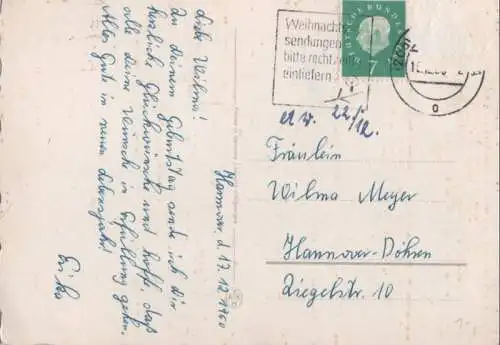 Hannover d. 17.12.1960
Liebe Wilma!
Zu Deinem Geburtstag sende ich Dir
herzliche Glückwünsche und hoffe, daß
alle Deine Wünsche in Erfüllung gehen.
Alles Gute im neuen Lebensjahr!
Erika
Weihnachts
sendungen
bitte recht
einliefern
DEUTSCHE BUNDES
7
22/
12.
Fräulein
Wilma Meyer
Hannover-Döhren
Ziegelstr. 10